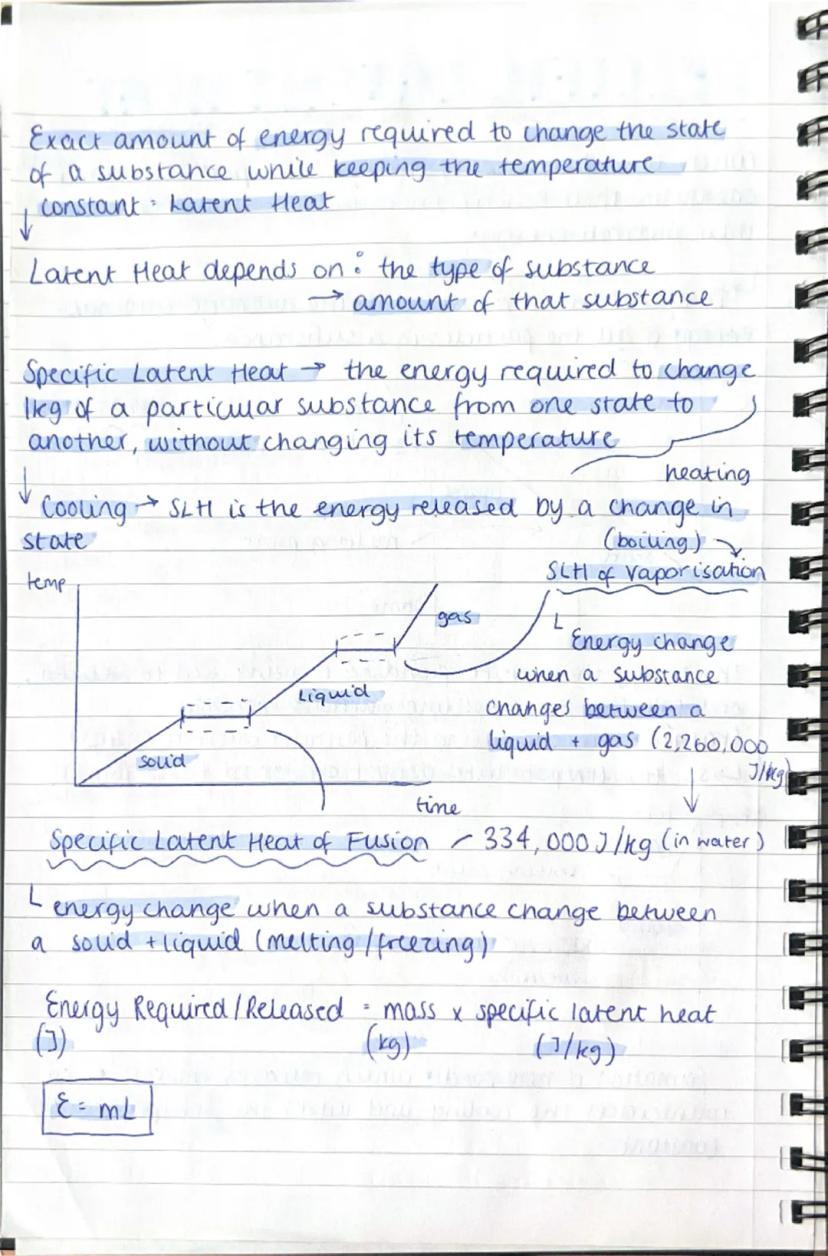 Exact amount of energy required to change the state
of a substance while keeping the temperature
constant = Latent Heat
Latent Heat depends on : the type of substance
→ amount of that substance
Specific Latent Heat → the energy required to change
1kg of a particular substance from one state to
another, without changing its temperature
heating
Cooling → SLH is the energy released by a change in
state
(boiling)
SLH of vaporisation
temp
gas
Energy change
when a substance
changes between a
liquid + gas (2,260,000
J/kg)
Liquid
solid
time
Specific Latent Heat of Fusion - 334,000 J/kg (in water)
energy change when a substance change between
a solid + liquid (melting/freezing)
Energy Required/Released = mass x specific latent heat
(J) (kg) (J/kg)
E = mL